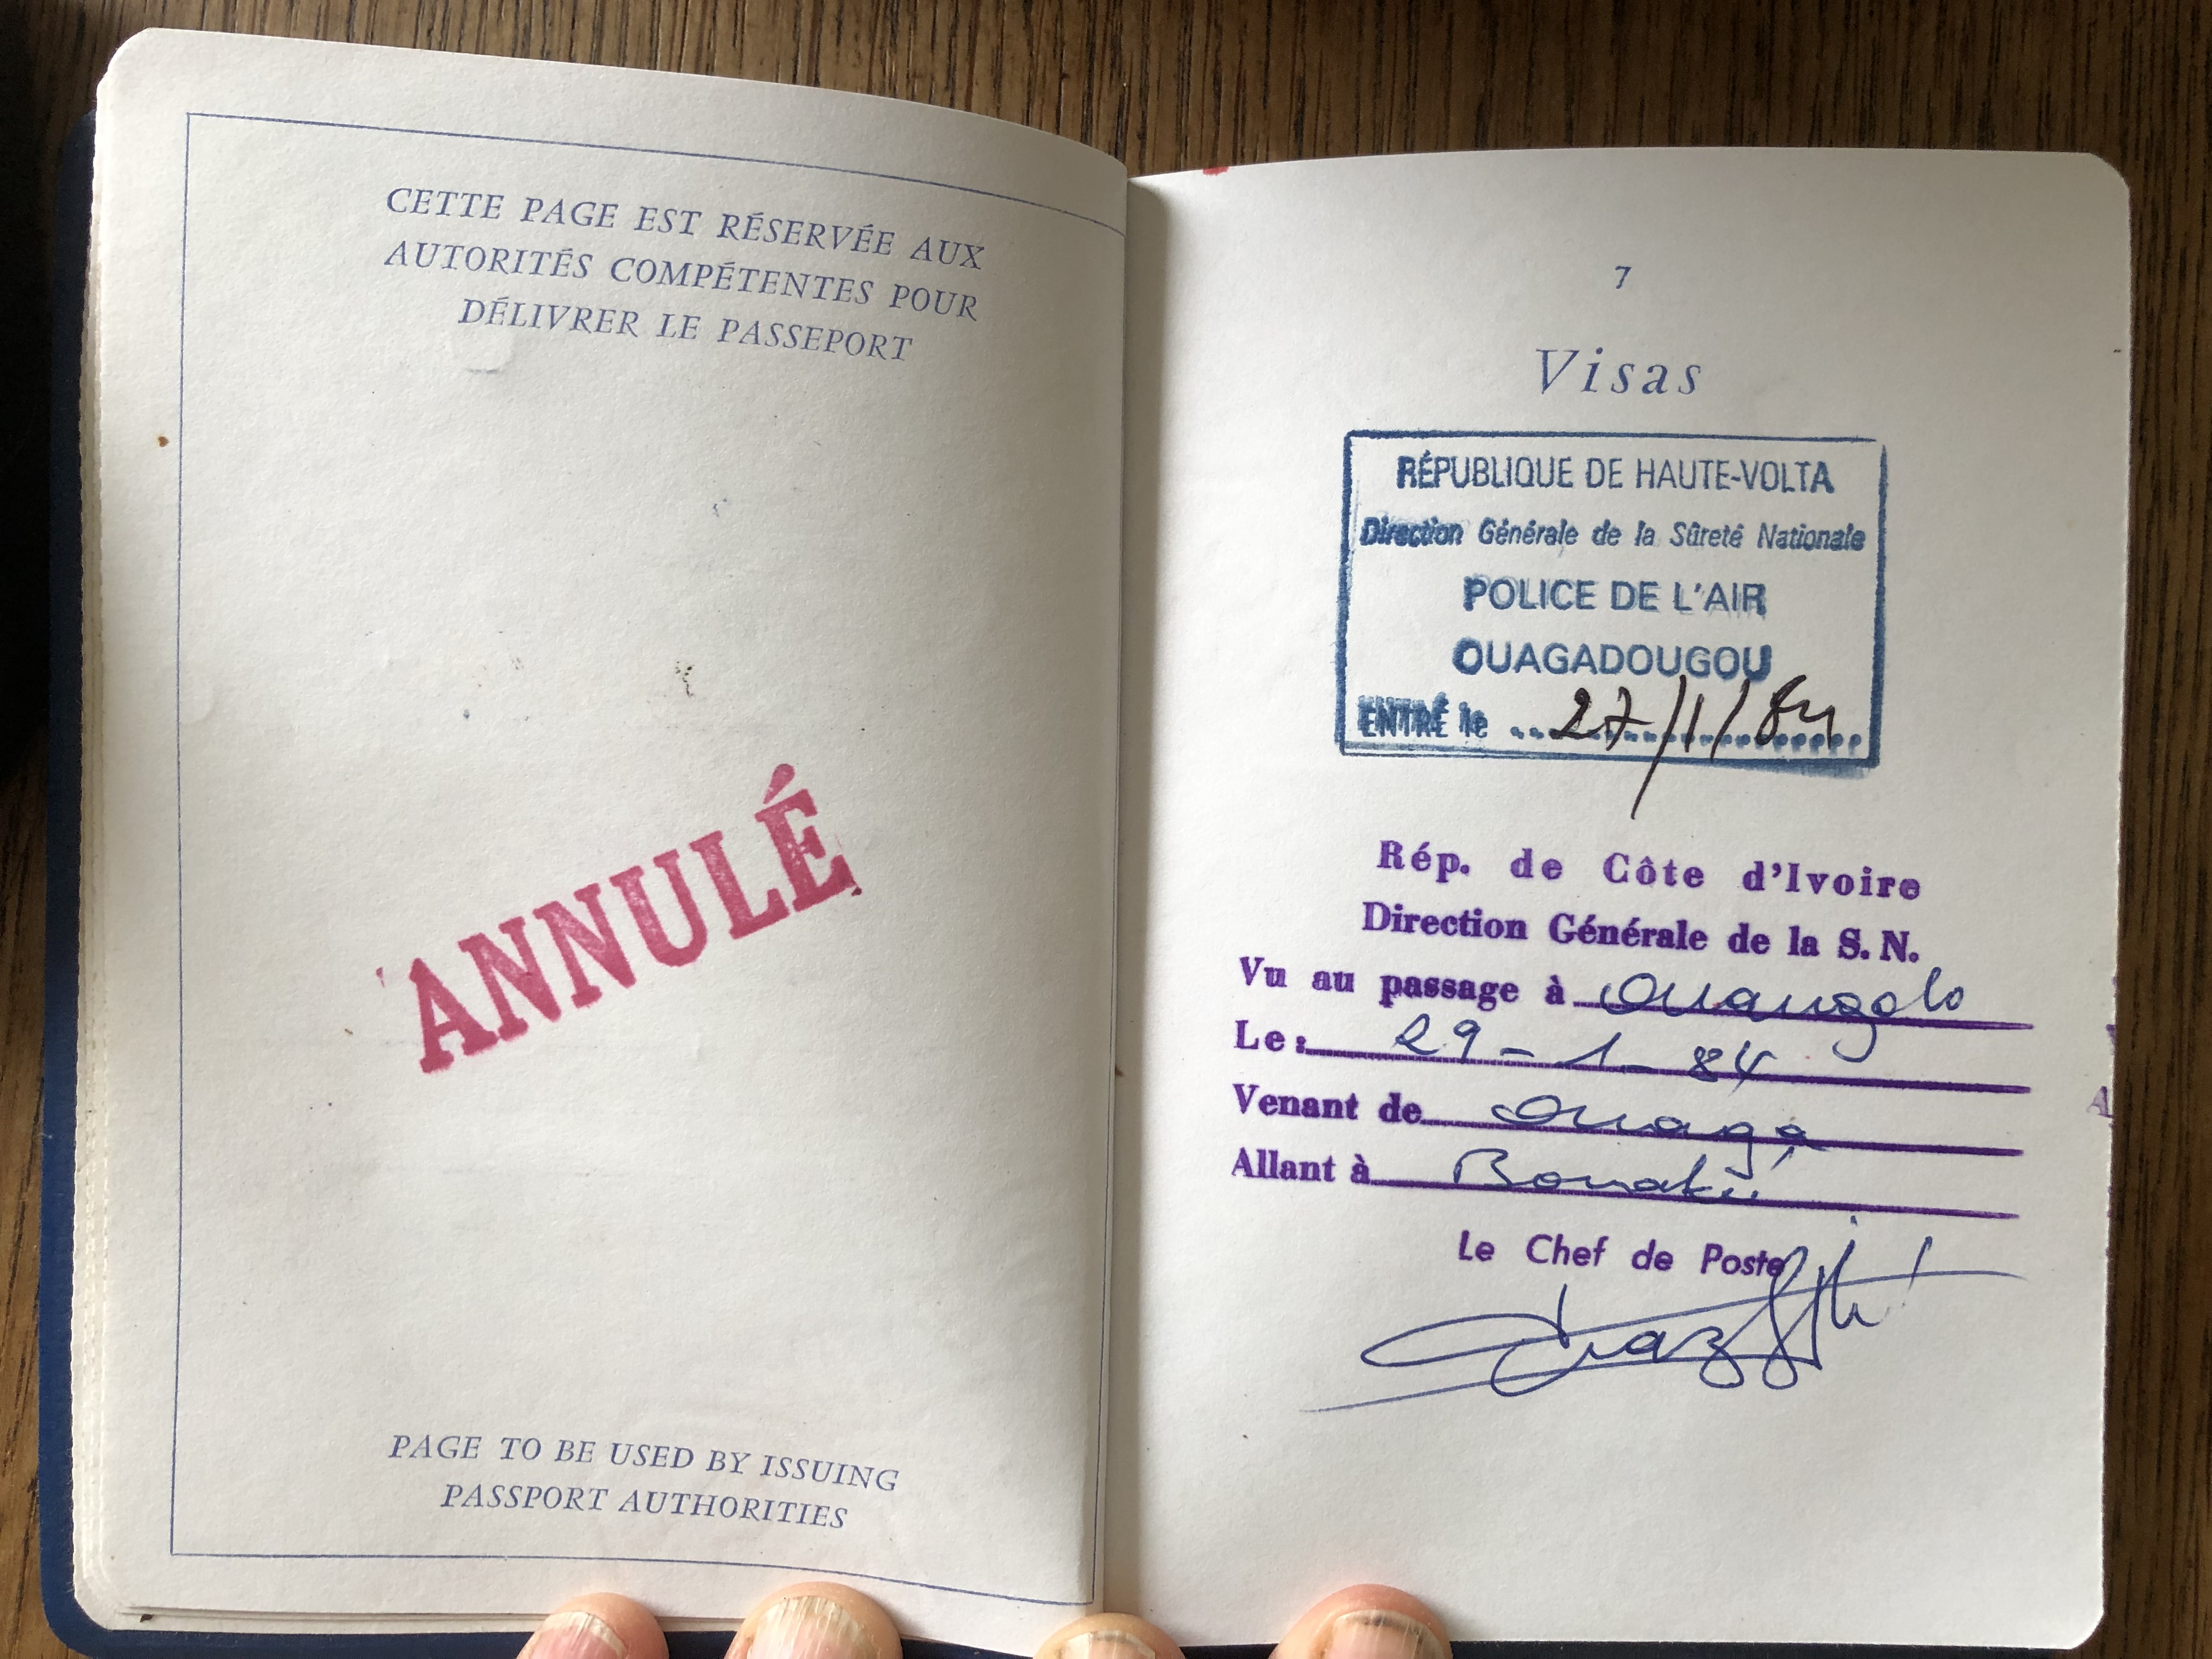 CETTE PAGE EST RÉSERVÉE AUX
AUTORITÉS COMPÉTENTES POUR
DÉLIVRER LE PASSEPORT
ANNULÉ
PAGE TO BE USED BY ISSUING
PASSPORT AUTHORITIES
7
Visas
RÉPUBLIQUE DE HAUTE-VOLTA
Direction Générale de la Sûreté Nationale
POLICE DE L'AIR
OUAGADOUGOU
ENTRÉ le 27/1/84
Rép. de Côte d'Ivoire
Direction Générale de la S. N.
Vu au passage à Ouangolo
Le: 29-1-84
Venant de Ouaga
Allant à Bouaké
Le Chef de Poste